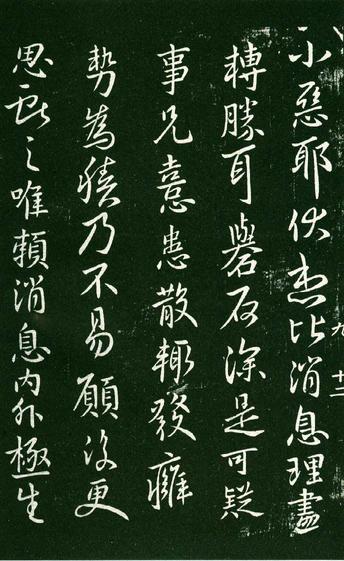 小惡耶伏想比消息理盡
轉勝耳礜石深是可疑
事兄憙患散輒發癰
勢為積乃不易願復更
思獻之唯賴消息內外極生
九 十二